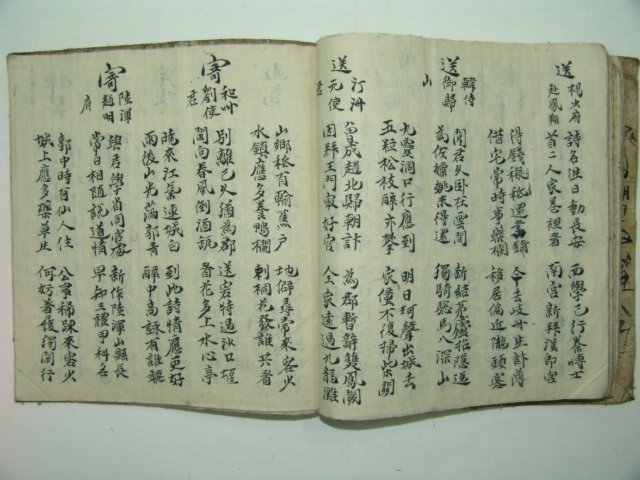 送楊少府赴鳳翔
詩名往日動長安 西學已行秦博士
首二人家卷裡看 南宮新拜漢郎官
得錢祗了還書鋪 今去岐州生計薄
借宅常時事藥欄 移居偏近隴頭寒
送韓侍御歸山
聞君久卧在雲間 新結茅廬招隱逸
為佐嫖姚未得還 獨騎驄馬入深山
九靈洞口行應到 明日珂聲出城去
五粒松枝醉亦攀 家僮不復掃柴關
送汀洲元使君
曾成趙北歸朝計 為郡暫辭雙鳳闕
因拜王門最好官 全家遠過九龍灘
山鄉祗有輸蕉戶 地僻尋常來客少
水鎮應多養鴨欄 刺桐花發誰共看
寄和州劉使君
別離已久猶為郡 送客特過沙口堰
閒向春風倒酒瓶 看花多上水心亭
曉來江氣連城白 到此詩情應更好
雨後山光滿郭青 醉中高詠有誰聽
寄陸渾趙明府
與君學省同官處 新作陸渾山縣長
常日相隨說道情 早知三禮甲科名
郭中時有仙人住 公事稀踈來客少
城上應多藥草生 何妨著屐獨閒行